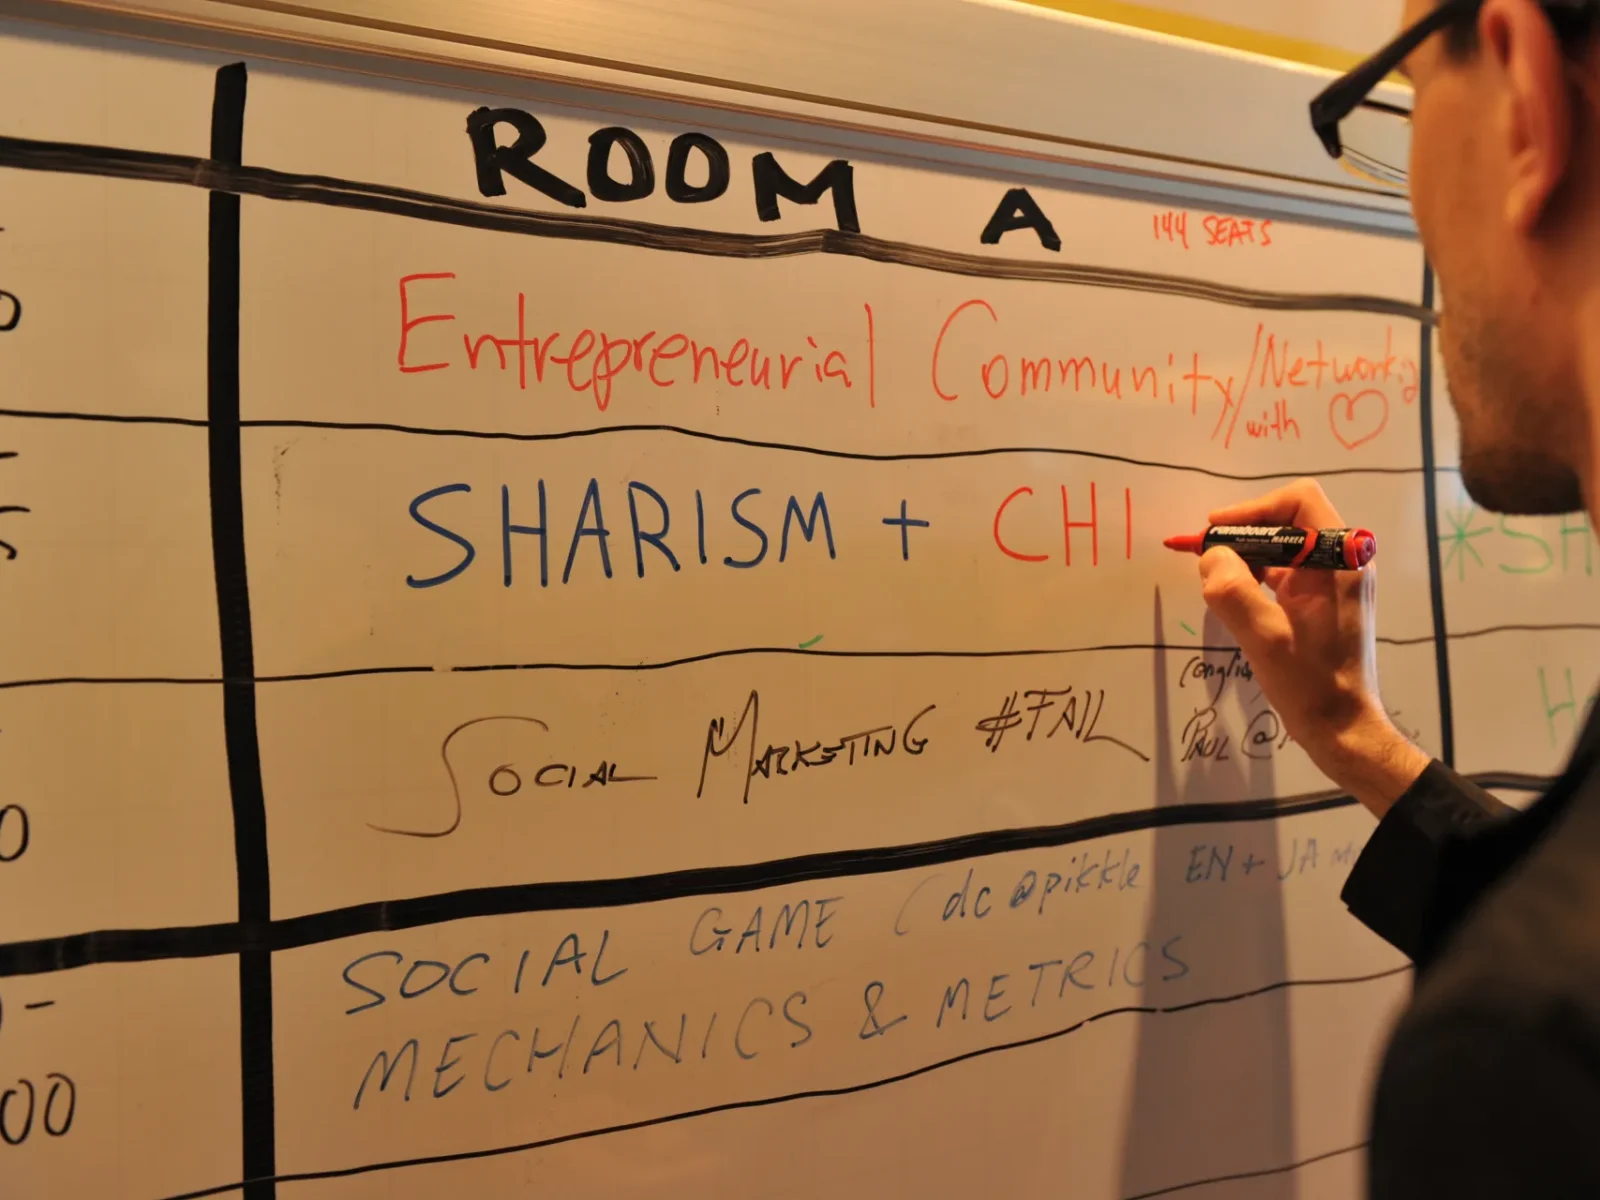 ROOM A 144 SEATS
Entrepreneurial Community/Networking
with
SHARISM + CHI
MARKER
*SH
SOCIAL MARKETING #FAIL
PAUL @
SOCIAL GAME (dc@pikkle EN + JA
MECHANICS & METRICS
00